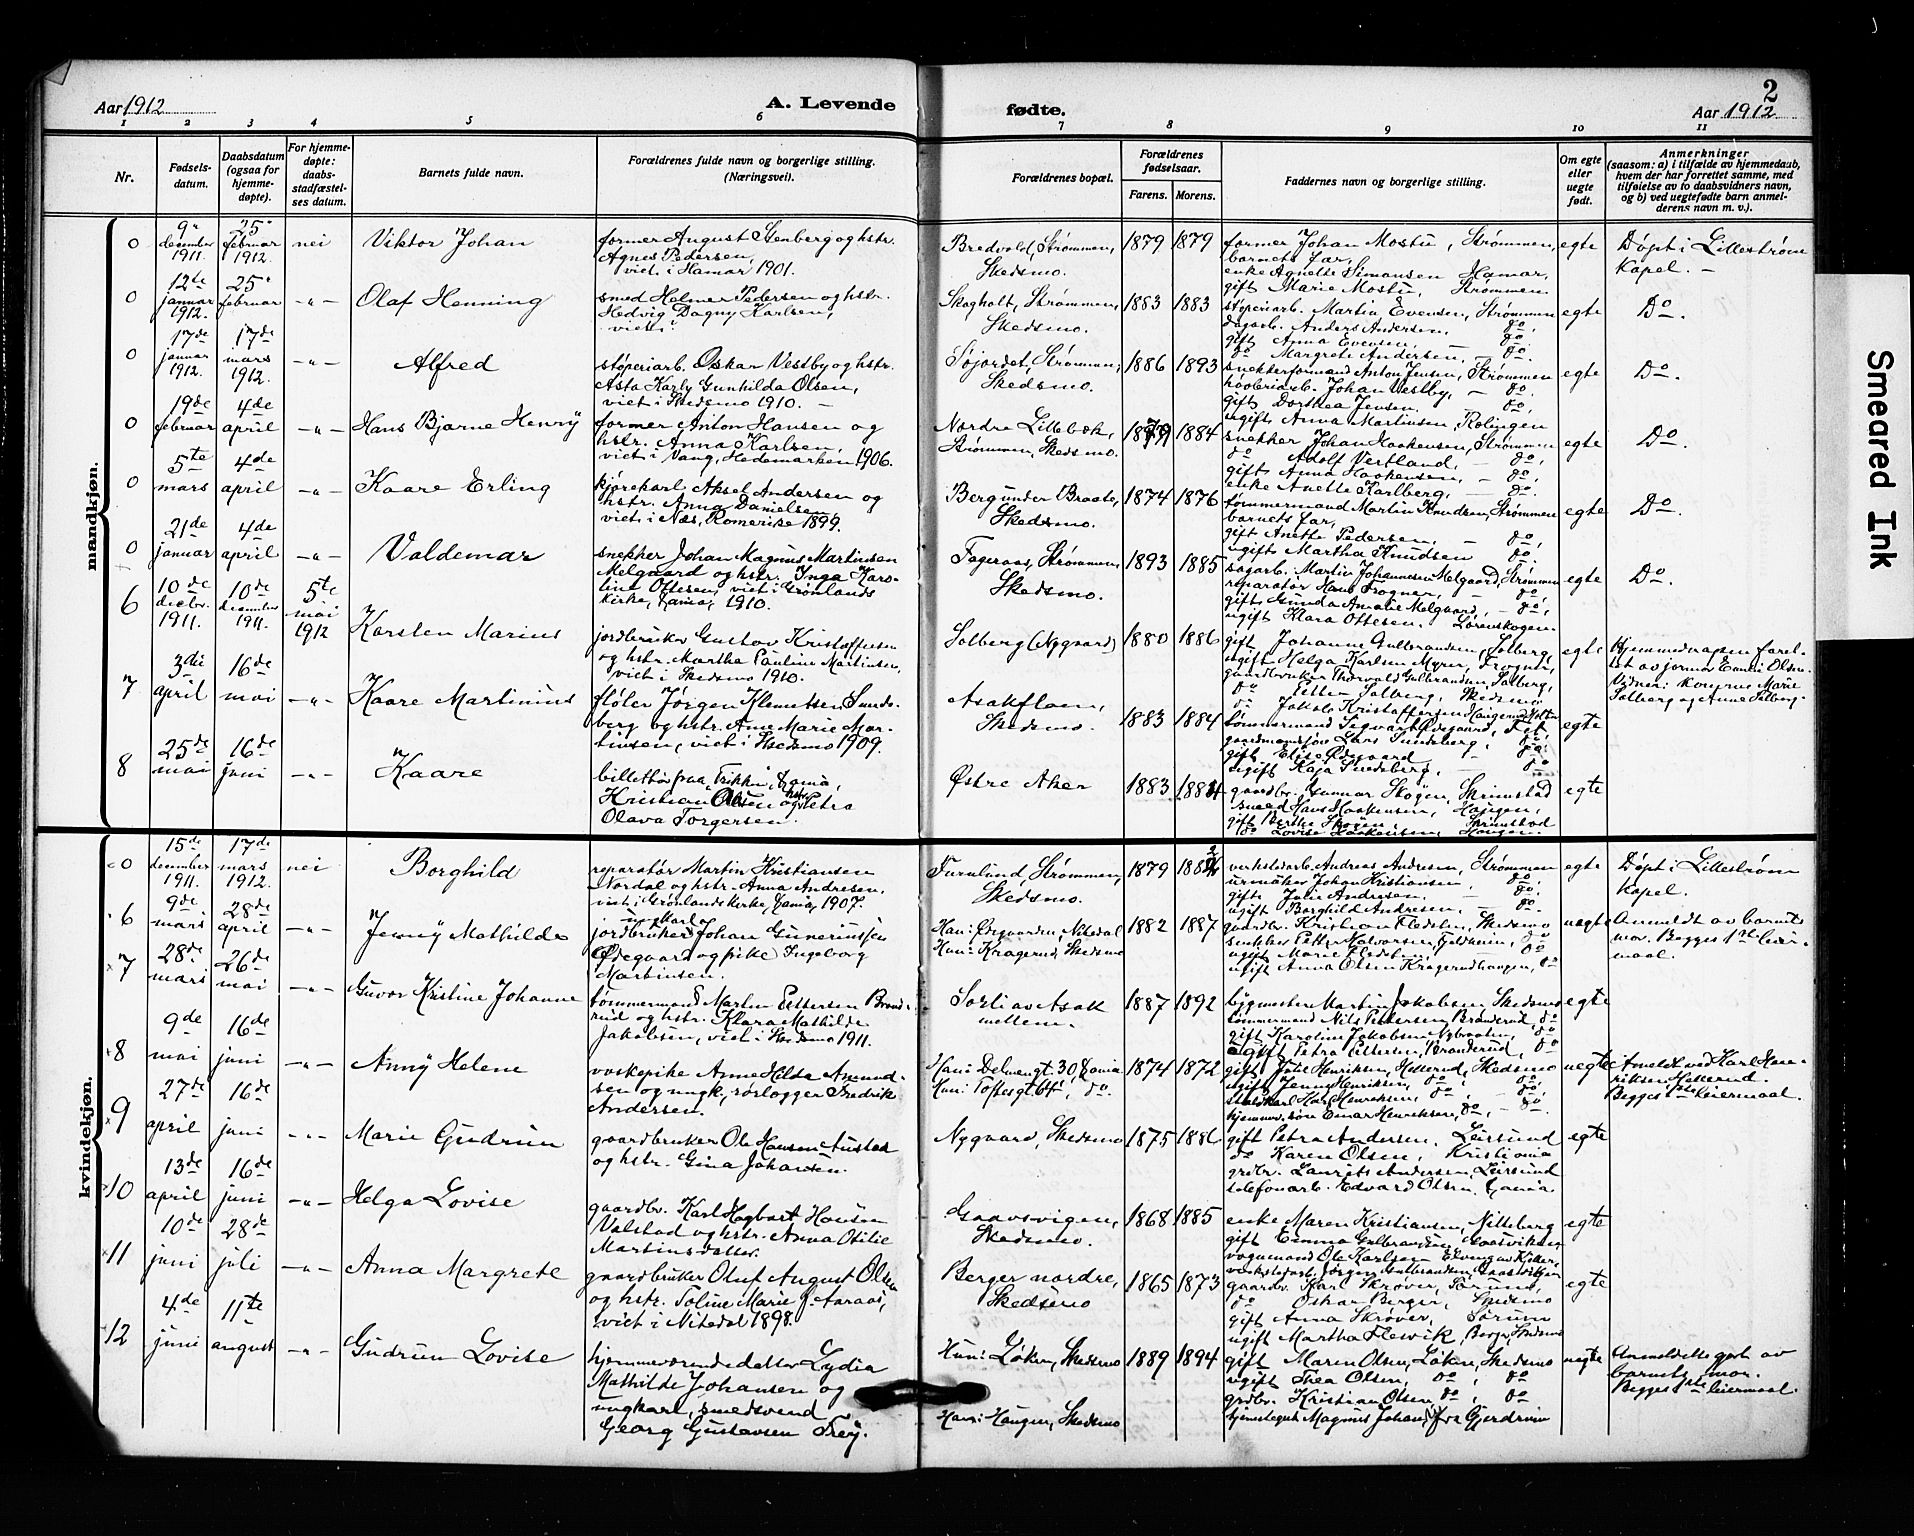 Aar 1912
A. Levende
fødte.
2
Aar 1912
1 2 3 4 5 6 7 8 9 10 11
Nr.
Fødsels-
datum.
Daabsdatum
(ogsaa for
hjemme-
døpte).
For hjemme-
døpte:
daabs-
stadfæstel-
ses datum.
Barnets fulde navn.
Forældrenes fulde navn og borgerlige stilling.
(Næringsvei).
Forældrenes bopæl.
Forældrenes
fødselsaar.
Farens. Morens.
Faddernes navn og borgerlige stilling.
Om egte
eller
uegte
født.
Anmerkninger
(saasom: a) i tilfælde av hjemmedaab,
hvem der har forrettet samme, med
tilføielse av to daabsvidners navn,
og b) ved uegtefødte barn anmel-
derens navn m. v.).
mandkjøn.
0
9de
december
1911.
25de
februar
1912.
nei
Viktor Johan
former August Stenberg og hstr.
Agnes Pedersen,
viet i Hamar 1901.
Bredvold, Strømmen,
Skedsmo.
1879 1879
former Johan Mostu, Strømmen,
barnets far,
enke Agnette Simonsen Hamar,
gift Marie Mostu, Strømmen
egte
Døpt i Lillestrøm
Kapel. —
0
12te
januar
1912.
25de
februar
-"-
Olaf Henning
smed Helmer Pedersen og hstr.
Hedvig Dagny Karlsen,
viet i
Skogholt, Strømmen,
Skedsmo.
1883 1883
støperiarb. Martin Evensen, Strømmen
dagarb. Anders Andersen, do.
gift Anna Evensen, do.
do Margrete Andersen, — do.
egte
Do.
0
17de
januar
1912.
17de
mars
1912.
-"-
Alfred
støperiarb. Oskar Vestby og hstr.
Asta Karly Gunhilda Olsen,
viet i Skedsmo 1910. —
Søjordet, Strømmen,
Skedsmo.
1886 1893
snekkerformand Anton Jensen, Strømmen
høvleriarb. Johan Vestby, — do.
gift Dorthea Jensen. do.
ugift Anna Martinsen, Rælingen
egte
Do.
0
19de
februar
4de
april
-"-
Hans Bjarne Henry
former Anton Hansen og
hstr. Anna Karlsen,
viet i Vang, Hedemarken, 1906.
Nordre Lillebæk,
Strømmen, Skedsmo.
1879 1884
snekker Johan Haakensen, Strømmen
do Adolf Vestland, — do.
gift Anna Haakensen, — do.
enke Anette Karlberg, — do.
egte
Do.
0
5te
mars
4de
april
-"-
Kaare Erling
kjørekarl Aksel Andersen og
hstr. Anna Danielsen,
viet i Næs, Romerike 1899.
Berg under Braate,
Skedsmo.
1874 1876
tømmermand Martin Knudsen, Strømmen
barnets far,
gift Anette Pedersen, — do,
ugift Martha Knudsen do,
egte
Do.
0
21de
januar
4de
april
-"-
Valdemar
snekker Johan Magnus Martinsen
Melgaard og hstr. Inga Karo-
line Ottesen, viet i Grønlands
kirke, Xania, 1910.
Fageraas, Strømmen,
Skedsmo.
1893 1885
sagarb. Martin Johannesen Melgaard, Strømmen
reparatør Hans Trogner, — do,
gift Gunda Amalie Melgaard, — do,
ugift Klara Ottesen. Lørenskogen.
egte
Do.
6
10de
decbr.
1911.
10de
december
1911.
5te
mai
1912
Karsten Marius
jordbruker Gustav Kristoffersen
og hstr. Martha Pauline Martinsen,
viet i Skedsmo 1910.
Solberg (Nygaard)
1880 1886
gift Johanne Gulbrandsen, Solberg,
ugift Helga Karlsen Myrer, Frogner,
gaardbruker Thorvald Gulbrandsen, Solberg,
do Petter Solberg, Skedsmo
do Jakob Kristoffersen Haugerud, Holter
egte
Hjemmedaapen foret-
tet av jormor Emmi Olsen
Vidner: konerne Marie
Solberg og Anne Solberg.
7
3die
april
16de
mai
-"-
Kaare Martinius
fløter Jørgen Klemetsen Sunds-
berg og hstr. Anne Marie Mar-
tinsen, viet i Skedsmo 1909.
Asakfloen,
Skedsmo.
1883 1884
tømmermand Sigvart Ødegaard, Fet,
gaardmandssøn Lars Sundsberg, do.
gift Elise Ødegaard — do.
ugift Kaja Sundsberg, — do
egte
8
25de
mai
16de
juni
-"-
Kaare
billettør fraa Trikken, Xania,
Kristian Olsen og hstr. Petra
Olava Torgersen.
Østre Aker
1883 1884
gaardbr. Gunnar Skogen, Skrimstad
smed Hans Haakensen, Haugen,
gift Berthe Skogen, Skrimstad
do Lovise Haakensen, Haugen.
egte
kvindekjøn.
0
15de
december
1911.
17de
mars
1912.
nei
Borghild
reparatør Martin Kristiansen
Nordal og hstr. Anna Andresen,
viet i Grønlands kirke, Xania, 1907.
Furulund, Strømmen,
Skedsmo.
1879
verkstedarb. Andreas Andresen, Strømmen
urmaker Johan Kristiansen, do,
gift Julie Andresen, — do,
ugift Borghild Andresen, — do.
egte
Døpt i Lillestrøm
kapel.
6
9de
mars
28de
april
-"-
Jenny Mathilde
ungkarl
jordbruker Johan Gunerinssen
Ødegaard og pike Ingeborg
Martinsen.
Han: Ødegaarden, Nitedal
Hun: Kragerud, Skedsmo
1882 1887
gaardbr. Kristian Flodslien, Skedsmo
snekker Petter Halvorsen, Fjeldheim, do
ugift Marie Flodslien, do
ugift Anna Olsen Kragerudhaugen, do
uegte
Anmeldt av barnets
mor. Begges 1ste leier-
maal.
7
28de
mars
26de
mai
-"-
Guvor Kristine Johanne
tømmermand Martin Pettersen Brænd-
rud og hstr. Klara Mathilde
Jakobsen, viet i Skedsmo 1911.
Sorli av Asak
mellem.
1887 1892
bygmester Martin Jakobsen, Skedsmo
tømmermand Nils Pettersen Brænderud, do
gift Karoline Jakobsen, Nybraaten, do
ugift Petra Pettersen, Brænderud, do
egte
8
9de
mai
16de
juni
-"-
Anny Helene
vaskepike Anne Hilda Amund-
sen og ungk., rørlægger Fredrik
Andersen.
Han: Delenengt. 30, Xania
Hun: Toftesgt. 64, do.
1874 1872
gift Julie Henriksen, Hellerud, Skedsmo
ugift Jenny Henriksen, do, do,
staldkarl Karl Henriksen, do, do,
hjemmev. søn Einar Henriksen, do, — do.
uegte
Anmeldt ved Karl Hen-
riksen Hellerud.
Begges 1ste leiermaal.
9
27de
april
16de
juni
-"-
Marie Gudrun
gaardbruker Ole Hansen Austad
og hstr. Gina Johansen.
Nygaard, Skedsmo
1875 1886
gift Petra Andersen, Leirsund
do Karen Olsen, Kristiania
grdbr. Laurits Andersen, Leirsund
telefonarb. Edvard Olsen, Xania
egte
10
13de
april
16de
juni
-"-
Helga Lovise
gaardbr. Karl Hagbart Hansen
Valstad og hstr. Anna Otilie
Martinsdatter.
Gaasvigen,
Skedsmo.
1868 1885
enke Maren Kristiansen, Nitteberg
gift Emma Gulbrandsen, Gaasviken,
vognmand Ole Karlsen,
verkstedarb. Jørgen Gulbrandsen, Gaasviken
egte
11
10de
juni
28de
juli
-"-
Anna Margrete
gaardbruker Oluf August Olsen
og hstr. Toline Marie f. Aaraas,
viet i Nitedal 1898.
Berger nordre,
Skedsmo
1865 1873
gaardbr. Karl Skrøver, Sørum,
do Oskar Berger, Skedsmo
gift Anna Skrøver, Sørum
ugift Martha Flesvik, Berger, Skedsmo
egte
12
4de
juni
11te
august
-"-
Gudrun Lovise
hjemmeværende datter Lydia
Mathilde Johansen og
ungkarl, smedsvend
Georg Gustavsen Frey.
Hun: Løken, Skedsmo
Han: Haugen, Skedsmo
1889 1894
gift Maren Olsen, Løken, Skedsmo
ugift Thea Olsen, do, do
grdbr. Kristian Olsen do, do
tjenestegut Magnus Johansen fra Gjerdrum
uegte
Anmeldelse gjort av
barnets mor.
Begges 1ste leiermaal.
Smeared Ink